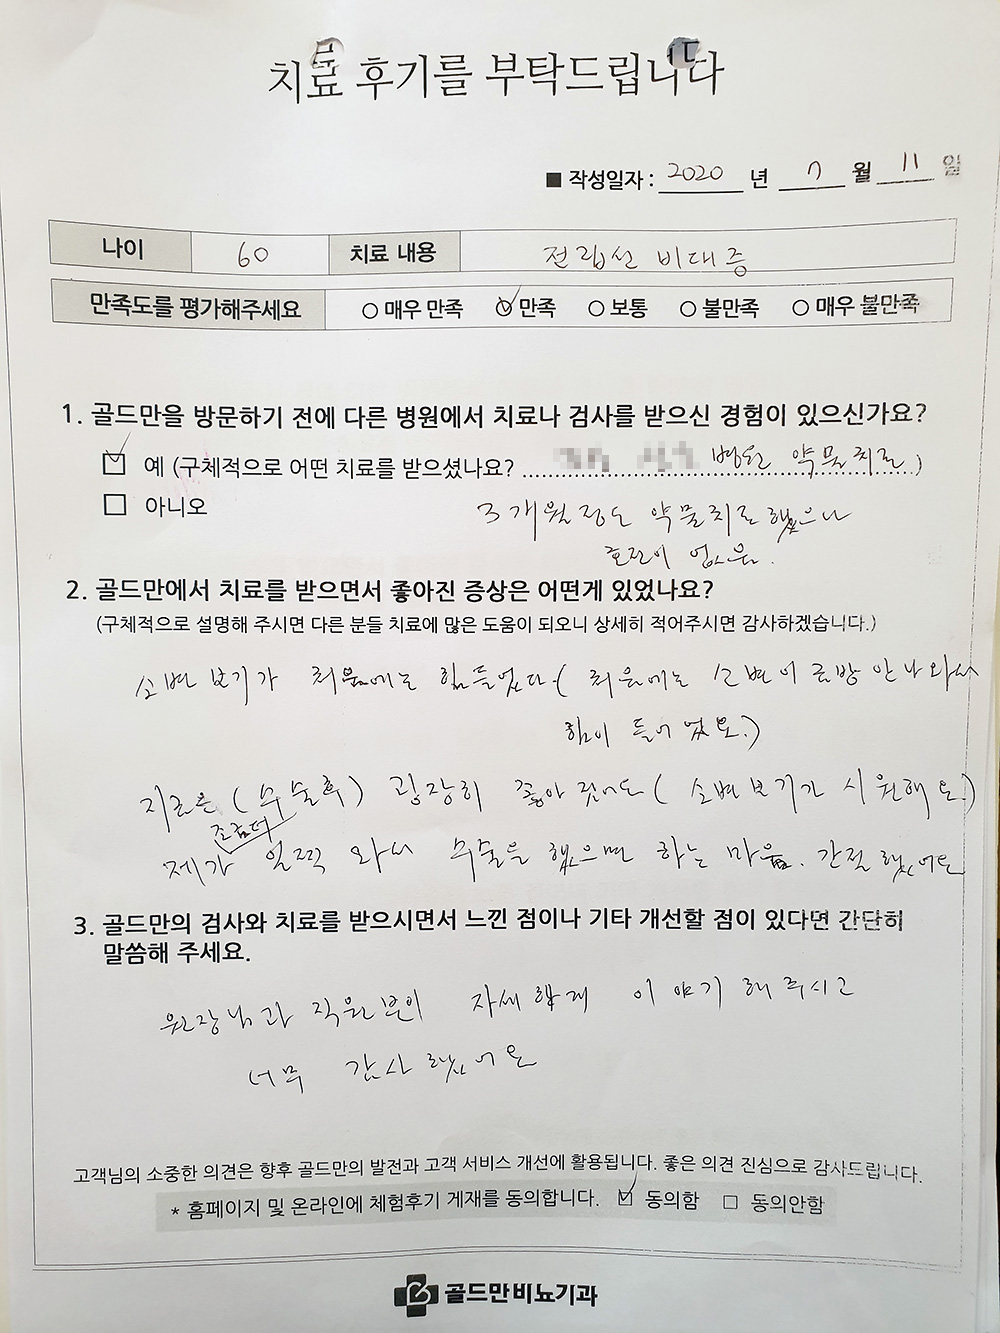 치료 후기를 부탁드립니다
■ 작성일자 : 2020 년 7 월 11 일
나이 60 치료 내용 전립선 비대증
만족도를 평가해주세요 ○ 매우 만족 ○ 만족 ○ 보통 ○ 불만족 ○ 매우 불만족
1. 골드만을 방문하기 전에 다른 병원에서 치료나 검사를 받으신 경험이 있으신가요?
예 (구체적으로 어떤 치료를 받으셨나요? 병원 약물치료 )
아니오 3개월정도 약물치료 했으나
호전이 없음.
2. 골드만에서 치료를 받으면서 좋아진 증상은 어떤게 있었나요?
(구체적으로 설명해 주시면 다른 분들 치료에 많은 도움이 되오니 상세히 적어주시면 감사하겠습니다.)
소변보기가 처음에는 힘들었다 (처음에는 소변이 금방 안나와서
힘이 들어었요.)
지금은 (수술후) 굉장히 좋아 졌어요 (소변보기가 시원해요.)
조금더
제가 일찍 와서 수술을 했으면 하는 마음. 간절했어요
3. 골드만의 검사와 치료를 받으시면서 느낀 점이나 기타 개선할 점이 있다면 간단히
말씀해 주세요.
원장님과 직원분이 자세하게 이야기 해주시고
너무 감사했어요
고객님의 소중한 의견은 향후 골드만의 발전과 고객 서비스 개선에 활용됩니다. 좋은 의견 진심으로 감사드립니다.
* 홈페이지 및 온라인에 체험후기 게재를 동의합니다. 동의함 동의안함
골드만비뇨기과